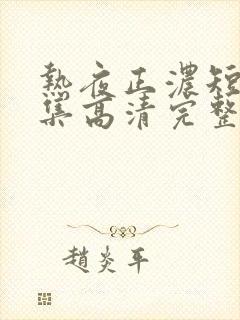 熱夜正濃短
集高清完整
趙炎平